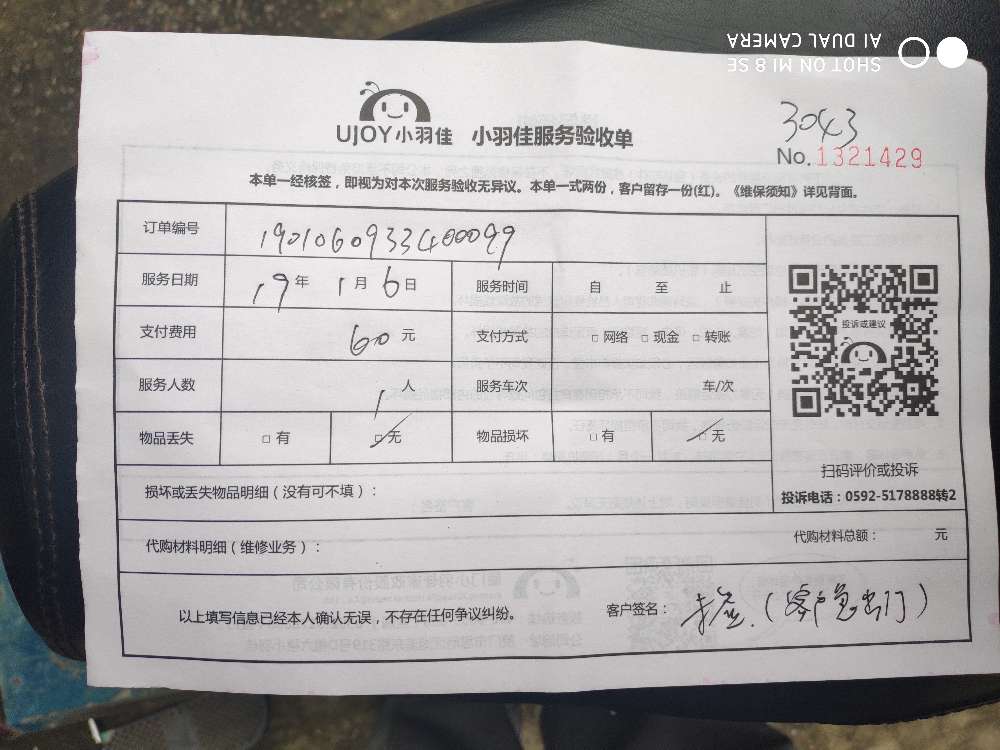 SHOT ON MI 8 SE
AI DUAL CAMERA
UJOY小羽佳 小羽佳服务验收单
3043
No.1321429
本单一经核签，即视为对本次服务验收无异议。本单一式两份，客户留存一份(红)。《维保须知》详见背面。
订单编号 1901060933400099
服务日期 19年 1月 6日 服务时间 自 至 止
支付费用 60 元 支付方式 □ 网络 □ 现金 □ 转账
服务人数 1 人 服务车次 车/次
物品丢失 □ 有 □ 无 物品损坏 □ 有 □ 无
投诉或建议
扫码评价或投诉
投诉电话：0592-5178888转2
损坏或丢失物品明细（没有可不填）：
代购材料明细（维修业务）： 代购材料总额： 元
以上填写信息已经本人确认无误，不存在任何争议纠纷。 客户签名： (客户急出门)